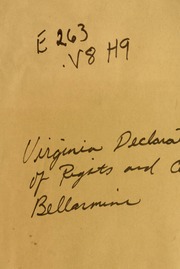 E 263
.V8 H9
Virginia Declarat
of Rights and C
Bellarmine